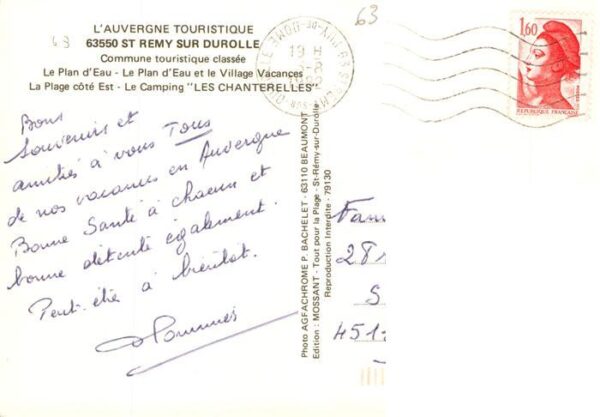 63
L'AUVERGNE TOURISTIQUE
63550 ST REMY SUR DUROLLE
Commune touristique classée
Le Plan d'Eau - Le Plan d'Eau et le Village Vacances
La Plage côté Est - Le Camping "LES CHANTERELLES"
19 H
1,60
REPUBLIQUE FRANÇAISE
Bons
Souvenirs et
amitiés à vous Tous
de nos vacances en Auvergne
Bonne Santé à chacun et
bonne détente également.
Peut-être à bientôt.
Photo AGFACHROME P. BACHELET - 63110 BEAUMONT
Edition : MOSSANT - Tout pour la Plage - St-Rémy-sur-Durolle
Reproduction Interdite - 79130
Fam
281
S
451